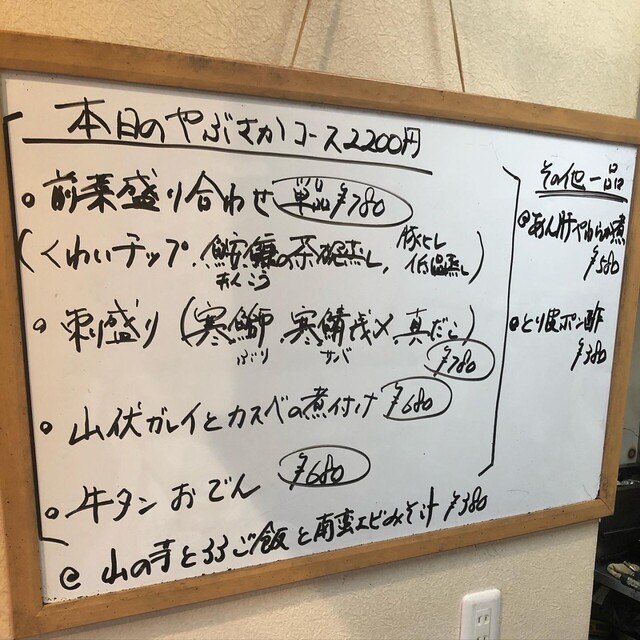 本日のやぶさかコース2200円
前菜盛り合わせ 単品¥780
(くわいチップ、鮟鱇の茶碗蒸し、豚ヒレ低温蒸し)
あんこう
刺盛り(寒鰤、寒鯖浅〆、真だこ)
ぶり サバ
¥780
山伏ガレイとカスベの煮付け ¥680
牛タンおでん ¥680
山の芋とろろご飯と南蛮エビのみそ汁 ¥380
その他一品
あん肝やわらか煮
¥580
とり皮ポン酢
¥380